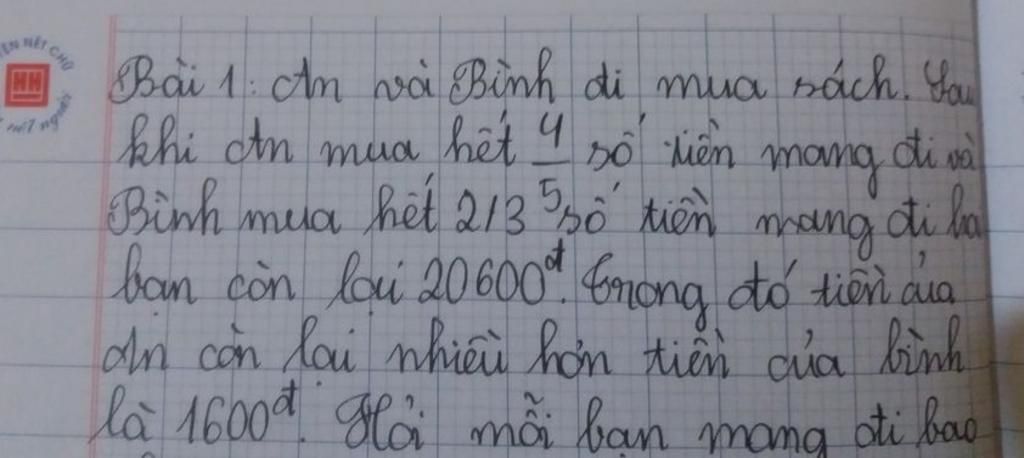 Bài 1: An và Bình đi mua sách. Sau
khi An mua hết 4/5 số tiền mang đi và
Bình mua hết 2/3 số tiền mang đi
bạn còn lại 20600đ. Trong đó tiền của
An còn lại nhiều hơn tiền của bình
là 1600đ. Hỏi mỗi bạn mang đi bao